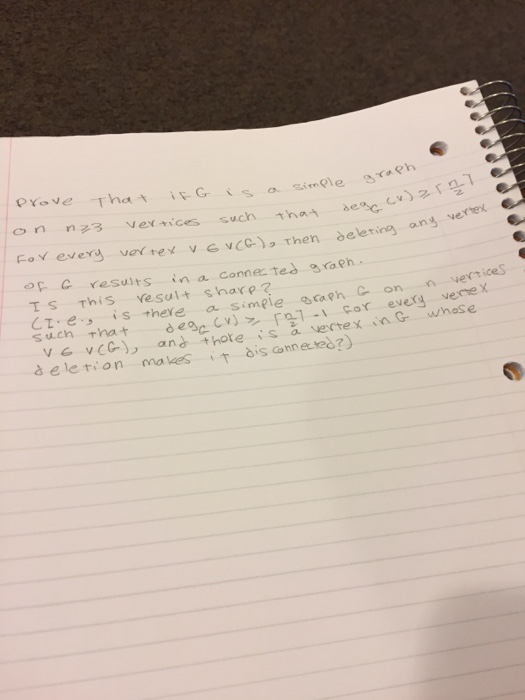 Prove That if G is a simple graph
on n≥3 vertices such that deg_G(v) ≥ ⌈n/2⌉
For every vertex v ∈ V(G), Then deleting any vertex
of G results in a connected graph.
Is This result sharp?
(I.e., is there a simple graph G on n vertices
such that deg_G(v) ≥ ⌈n/2⌉-1 for every vertex
v ∈ V(G), and there is a vertex in G whose
deletion makes it disconnected?)